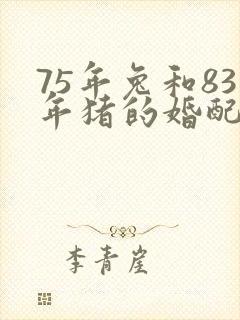 75年兔和83
年猪的婚配
李青崖